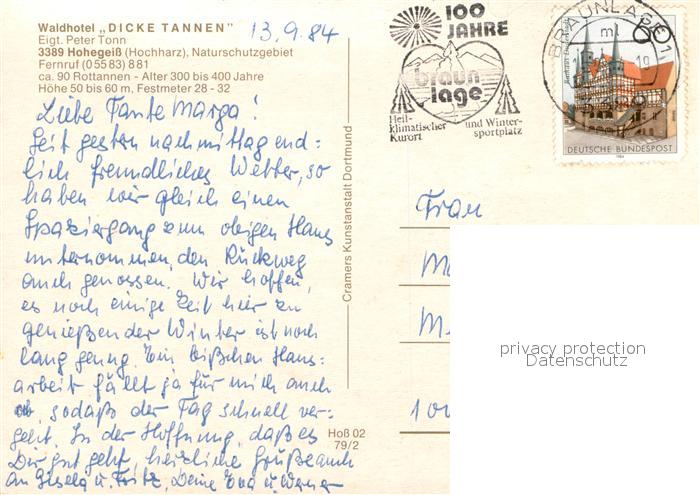 Waldhotel „DICKE TANNEN"
Eigt. Peter Tonn
3389 Hohegeiß (Hochharz), Naturschutzgebiet
Fernruf (05583) 881
ca. 90 Rottannen - Alter 300 bis 400 Jahre
Höhe 50 bis 60 m, Festmeter 28 - 32
13.9.84
Liebe Tante Marga!
Seit gestern nachmittag end=
lich freundliches Wetter, so
haben wir gleich einen
Spaziergang zum obigen Haus
unternommen, den Rückweg
auch genossen. Wir hoffen,
es noch einige Zeit hier zu
genießen der Winter ist noch
lang genug. Ein bißchen Haus=
arbeit fällt ja für mich auch
ab, sodaß der Tag schnell ver-
geht. In der Hoffnung, daß es
Dir gut geht, herzliche Grüße auch
an Gisela u. Fritz, Deine Eva u. Werner
Cramers Kunstanstalt Dortmund
Hoß 02
79/2
100
JAHRE
braun
lage
Heil-
klimatischer
Kurort
und Winter-
sportplatz
BRAUNLAGE 1
ml
DEUTSCHE BUNDESPOST
Frau
privacy protection
Datenschutz